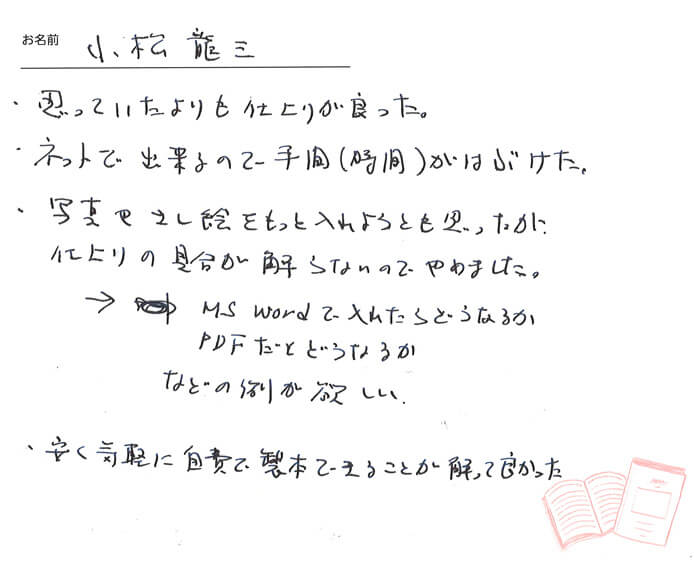 お名前 小松 龍三
・思っていたよりも仕上りが良った。
・ネットで出来るので手間(時間)がはぶけた。
・写真やさし絵をもっと入れようとも思ったが、
仕上りの具合が解らないのでやめました。
→ MS Wordで入れたらどうなるか
PDFだとどうなるか
などの例が欲しい.
・安く気軽に自費で製本できることが解って良かった